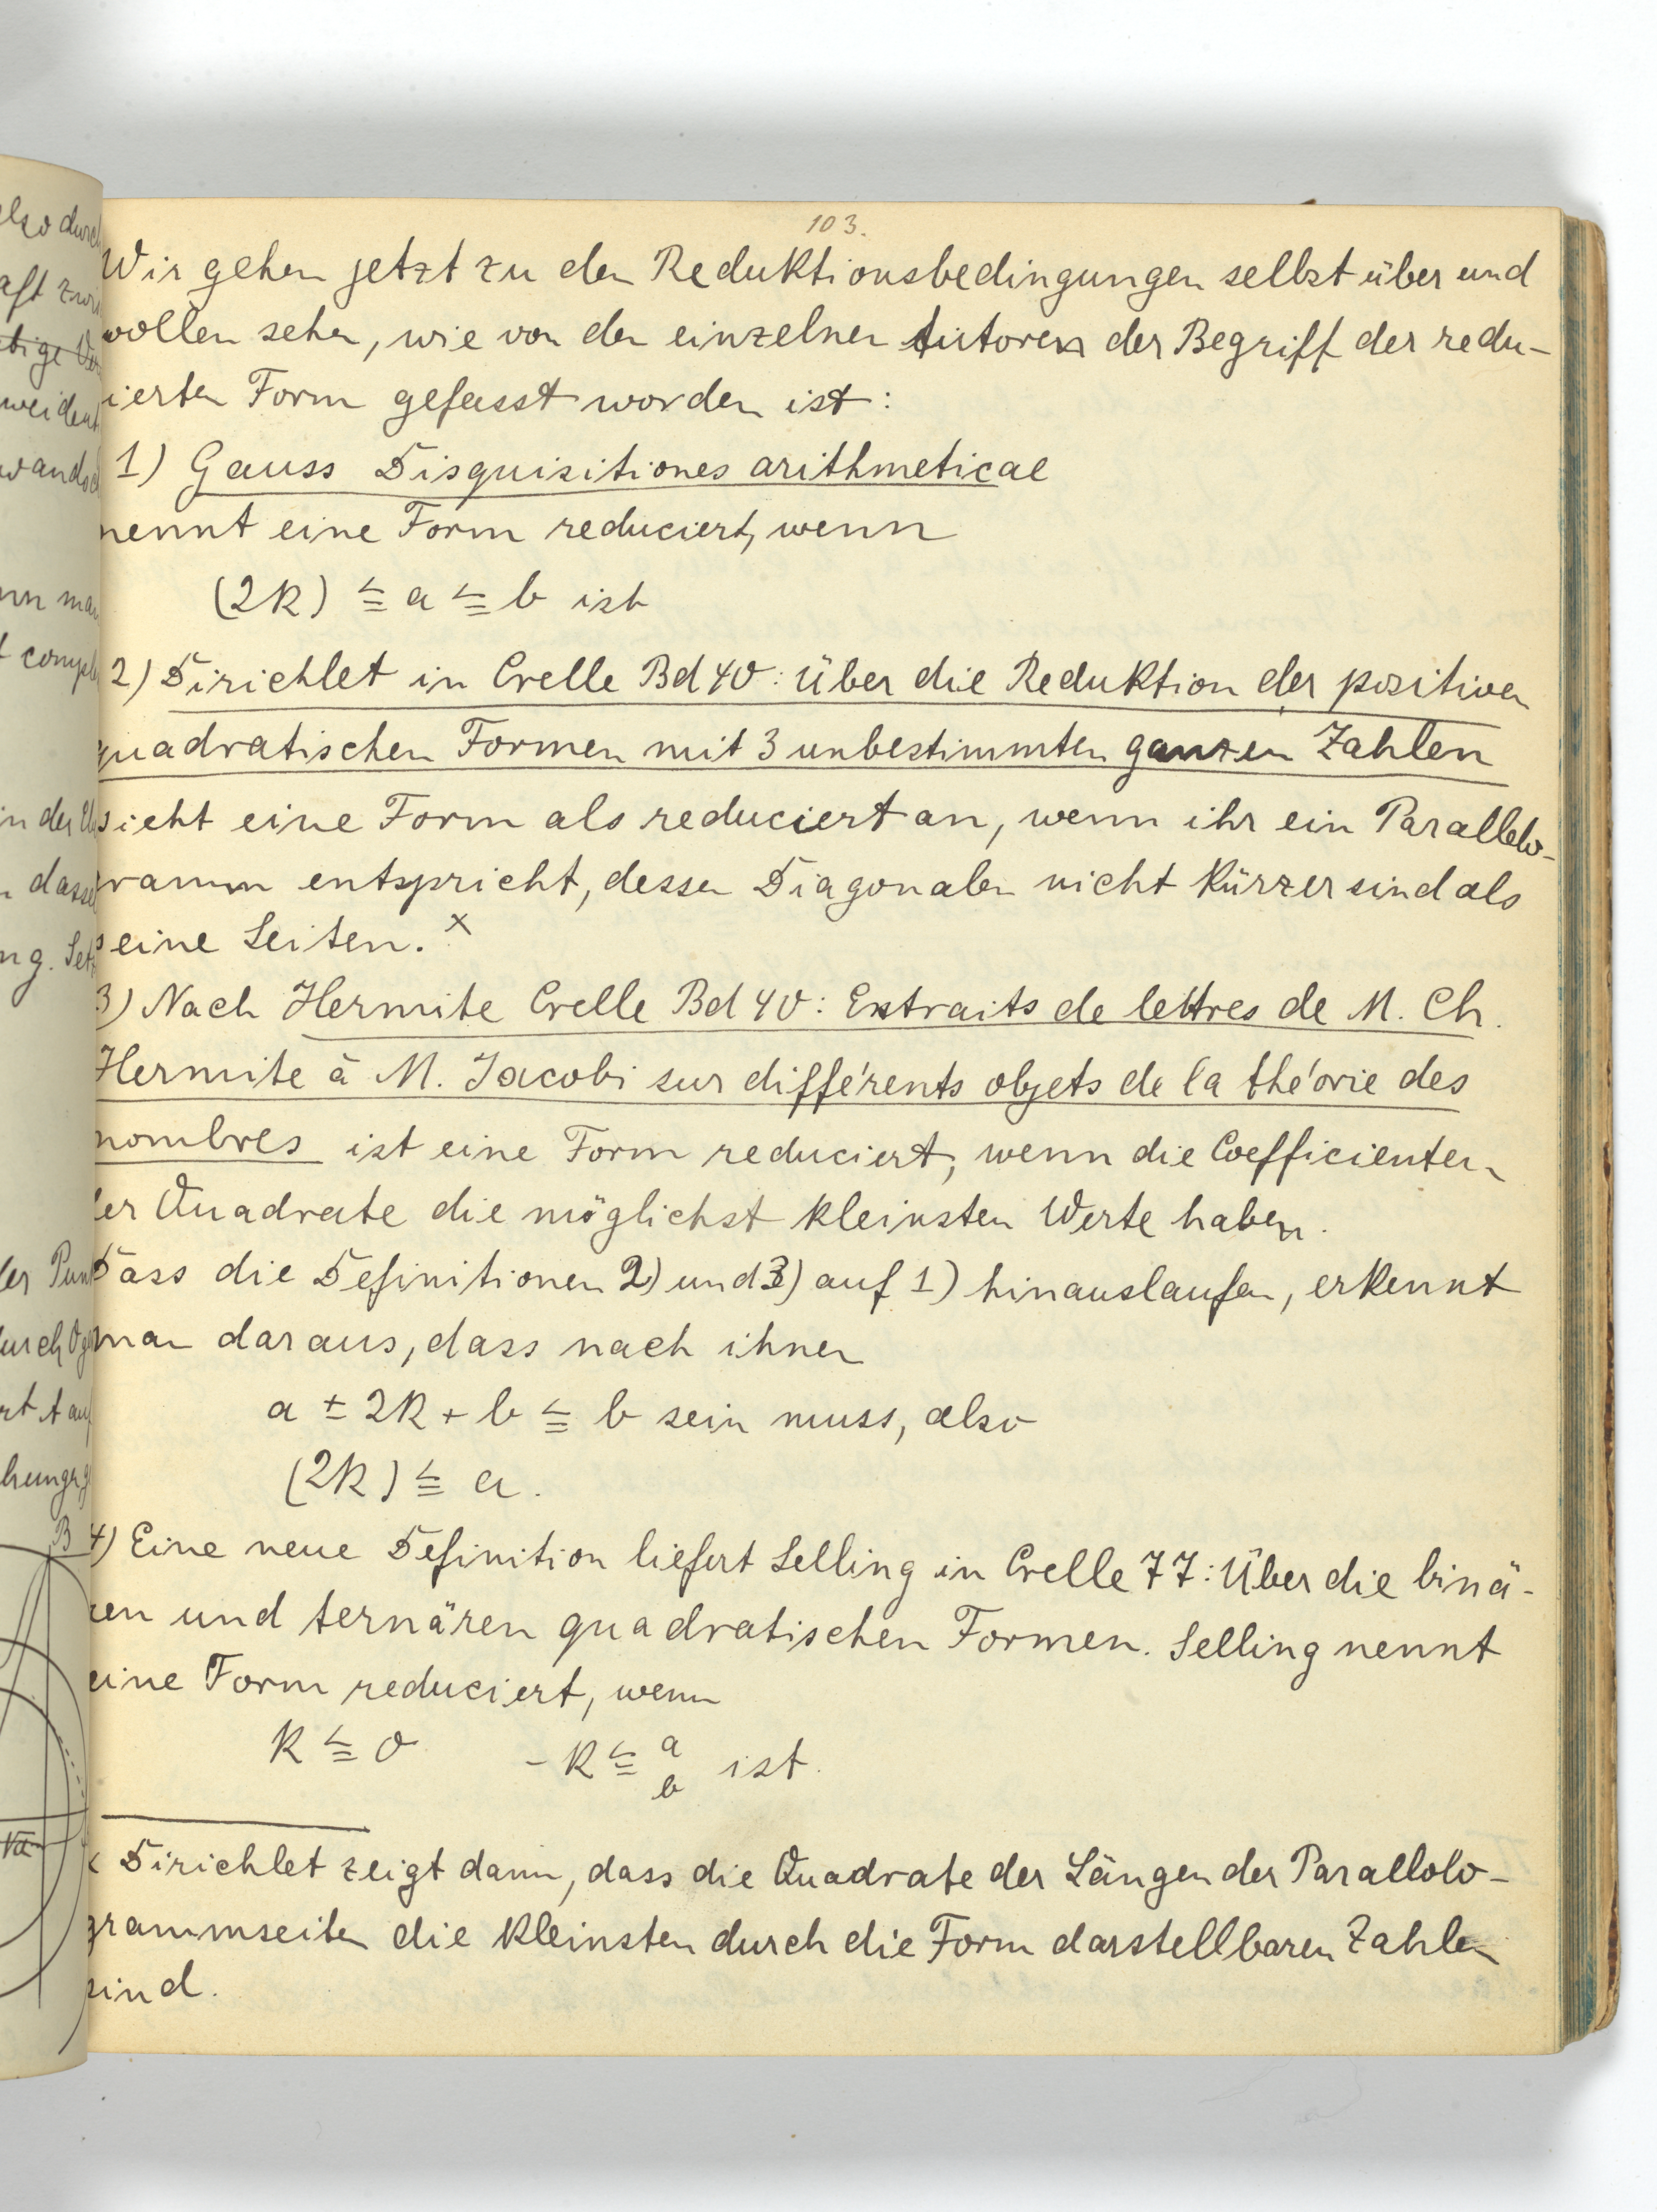 103.
Wir gehen jetzt zu den Reduktionsbedingungen selbst über und
wollen sehen, wie von den einzelnen Autoren der Begriff der redu-
ierten Form gefasst worden ist:
1) Gauss Disquisitiones arithmeticae
nennt eine Form reduciert, wenn
(2k) ≦ a ≦ b ist
2) Dirichlet in Crelle Bd 40: Über die Reduktion der positiven
quadratischen Formen mit 3 unbestimmten ganzen Zahlen
sieht eine Form als reduciert an, wenn ihr ein Parallelo-
gramm entspricht, dessen Diagonalen nicht kürzer sind als
seine Seiten. x
3) Nach Hermite Crelle Bd 40: Extraits de lettres de M. Ch.
Hermite à M. Jacobi sur différents objets de la théorie des
nombres ist eine Form reduciert, wenn die Coefficienten
der Quadrate die möglichst kleinsten Werte haben.
Dass die Definitionen 2) und 3) auf 1) hinauslaufen, erkennt
man daraus, dass nach ihnen
a ± 2k + b ≦ b sein muss, also
(2k) ≦ a.
4) Eine neue Definition liefert Selling in Crelle 77: Über die binä-
ren und ternären quadratischen Formen. Selling nennt
eine Form reduciert, wenn
k ≦ 0 -k ≦ a b ist.
x Dirichlet zeigt dann, dass die Quadrate der Längen der Parallolo-
grammseiten die kleinsten durch die Form darstellbaren Zahlen
sind.